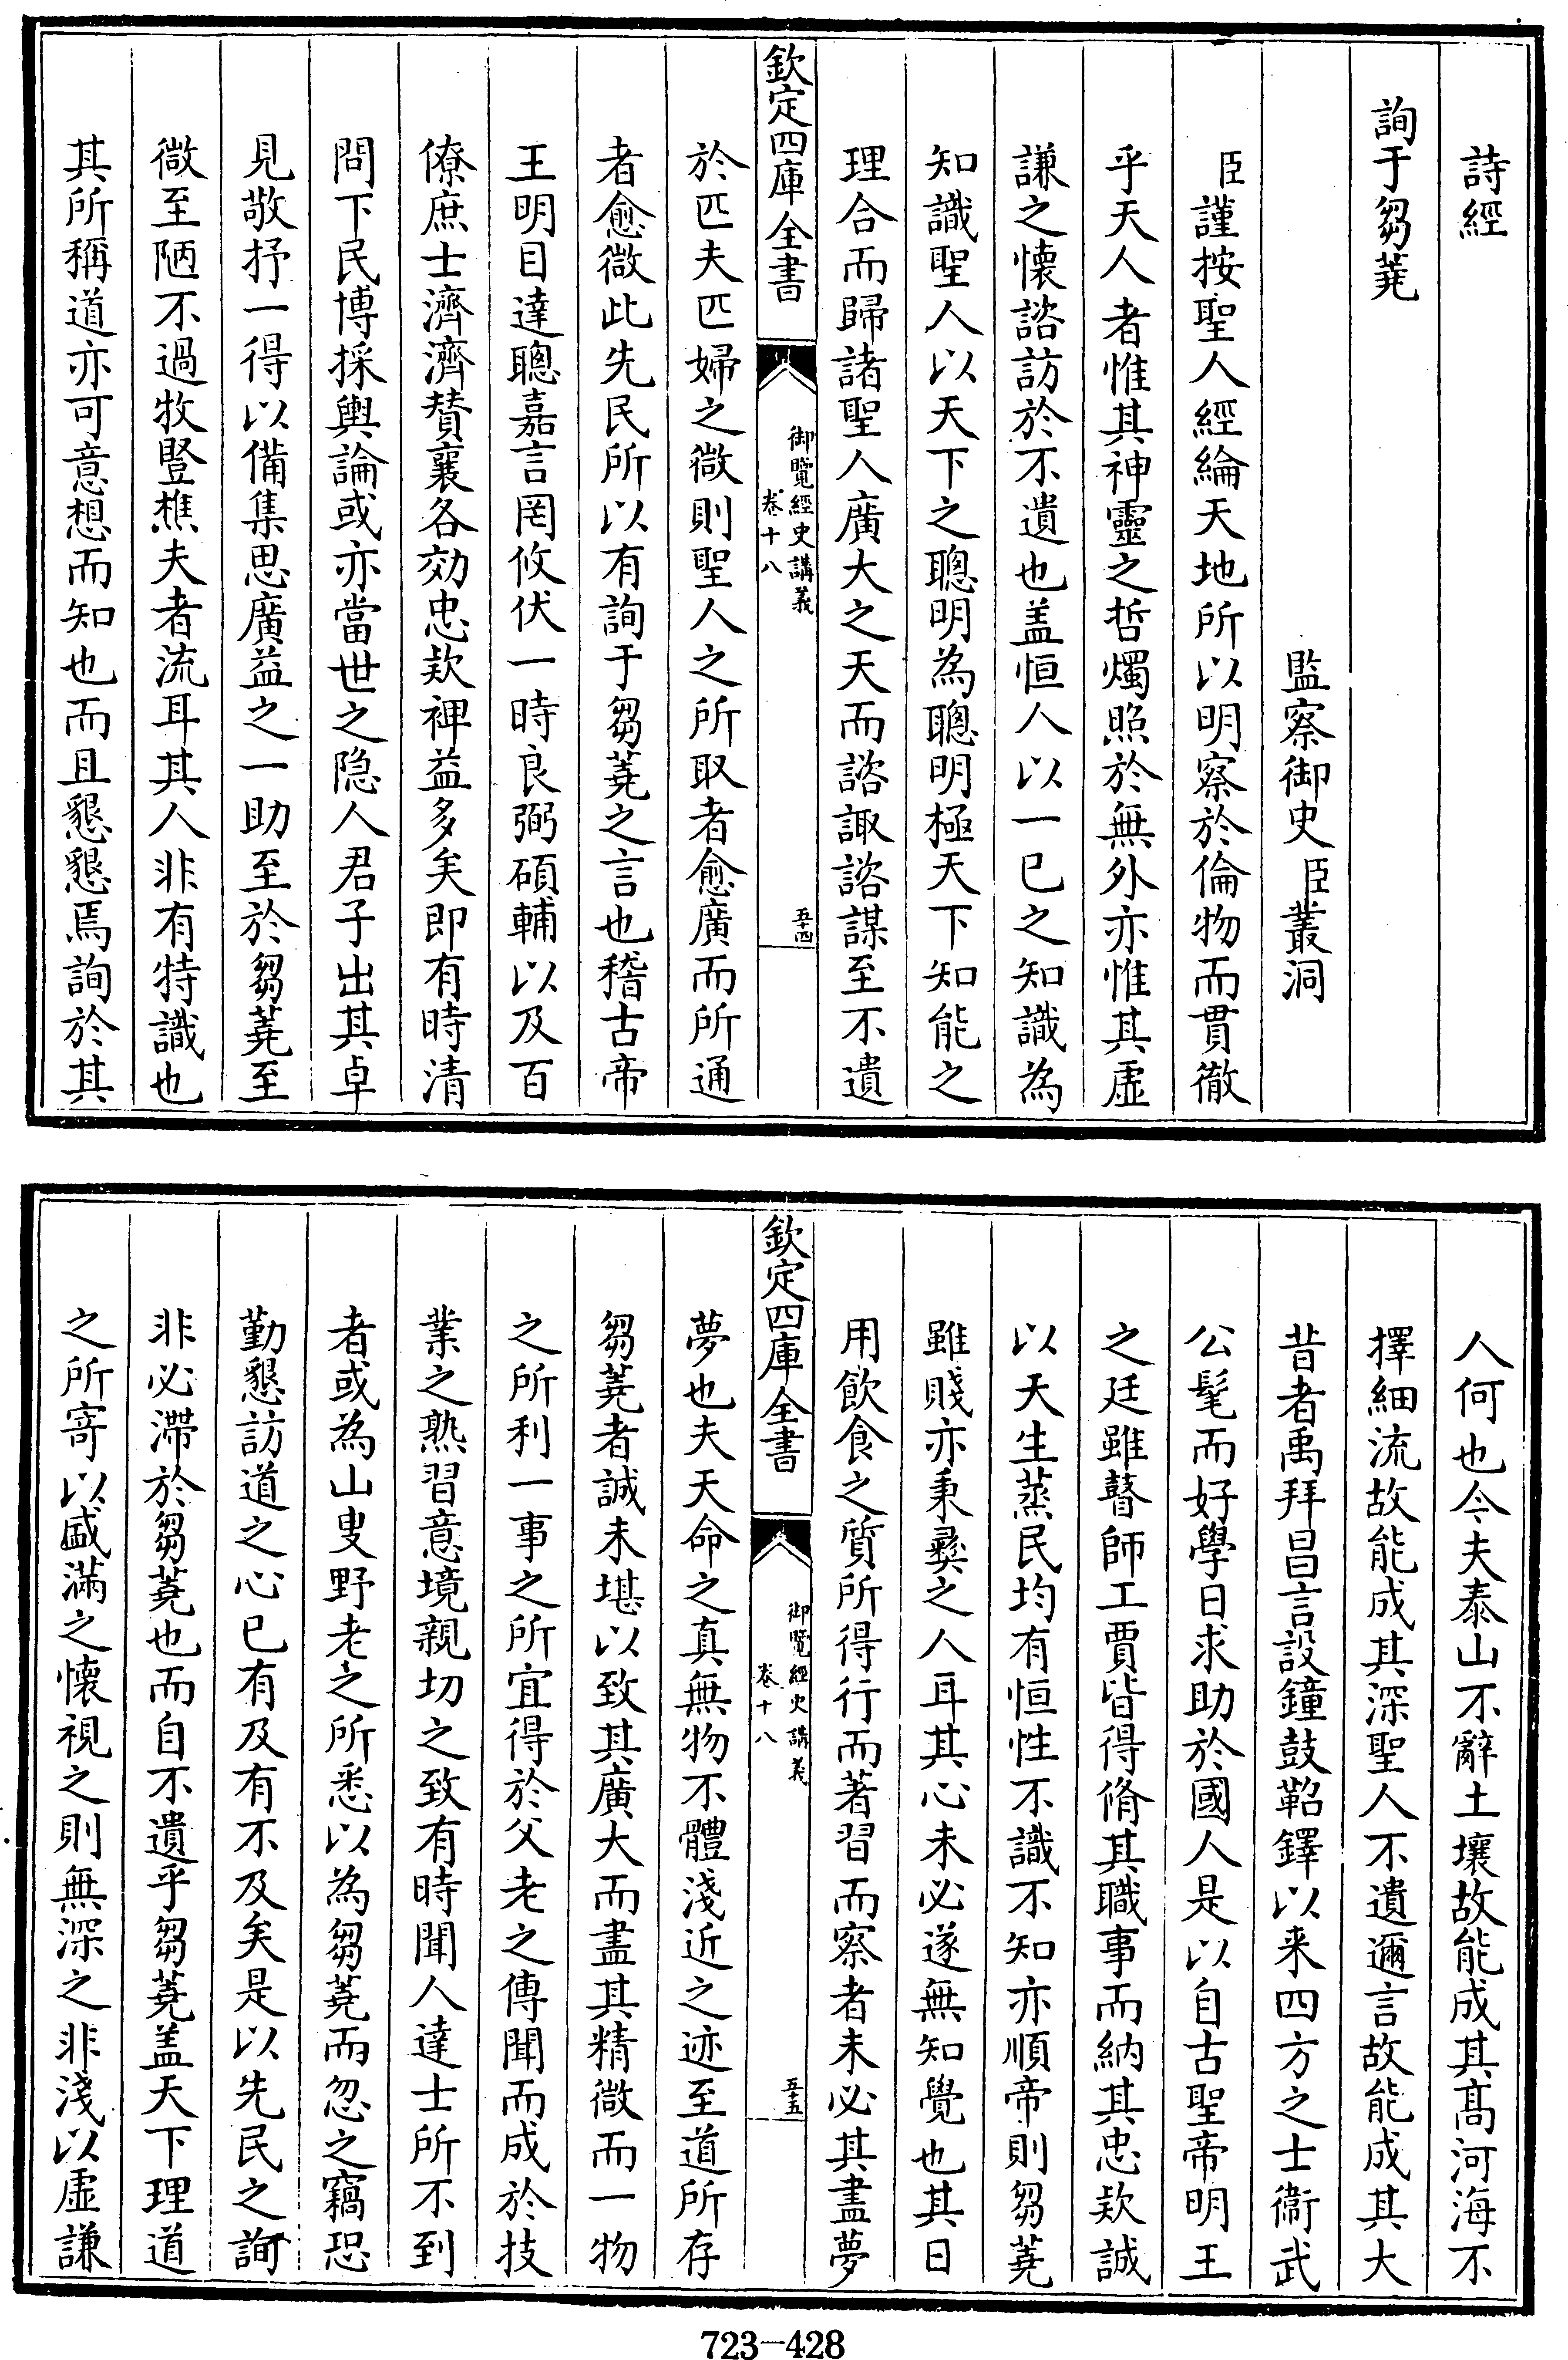 詩經
詢于芻蕘
監察御史臣叢洞
臣謹按聖人經綸天地所以明察於倫物而貫徹
乎天人者惟其神靈之哲燭照於無外亦惟其虛
謙之懷諮訪於不遺也盖恒人以一己之知識為
知識聖人以天下之聰明為聰明極天下知能之
理合而歸諸聖人廣大之天而諮諏諮謀至不遺
欽定四庫全書
御覽經史講義
卷十八
五十四
於匹夫匹婦之微則聖人之所取者愈廣而所通
者愈微此先民所以有詢于芻蕘之言也稽古帝
王明目達聰嘉言罔攸伏一時良弼碩輔以及百
僚庶士濟濟賛襄各効忠欵裨益多矣即有時清
問下民博採輿論或亦當世之隐人君子出其卓
見敬抒一得以備集思廣益之一助至於芻蕘至
微至陋不過牧豎樵夫者流耳其人非有特識也
其所稱道亦可意想而知也而且懇懇焉詢於其
人何也今夫泰山不辭土壤故能成其髙河海不
擇細流故能成其深聖人不遺邇言故能成其大
昔者禹拜昌言設鐘鼓鞀鐸以来四方之士衞武
公髦而好學日求助於國人是以自古聖帝明王
之廷雖瞽師工賈皆得脩其職事而納其忠欵誠
以天生蒸民均有恒性不識不知亦順帝則芻蕘
雖賤亦秉彝之人耳其心未必遂無知覺也其日
用飲食之質所得行而著習而察者未必其盡夢
欽定四庫全書
御覽經史講義
卷十八
五十五
夢也夫天命之真無物不體淺近之迹至道所存
芻蕘者誠未堪以致其廣大而盡其精微而一物
之所利一事之所宜得於父老之傳聞而成於技
業之熟習意境親切之致有時聞人達士所不到
者或為山叟野老之所悉以為芻蕘而忽之竊恐
勤懇訪道之心已有及有不及矣是以先民之詢
非必滯於芻蕘也而自不遺乎芻蕘盖天下理道
之所寄以盛滿之懷視之則無深之非淺以虛謙
723-428